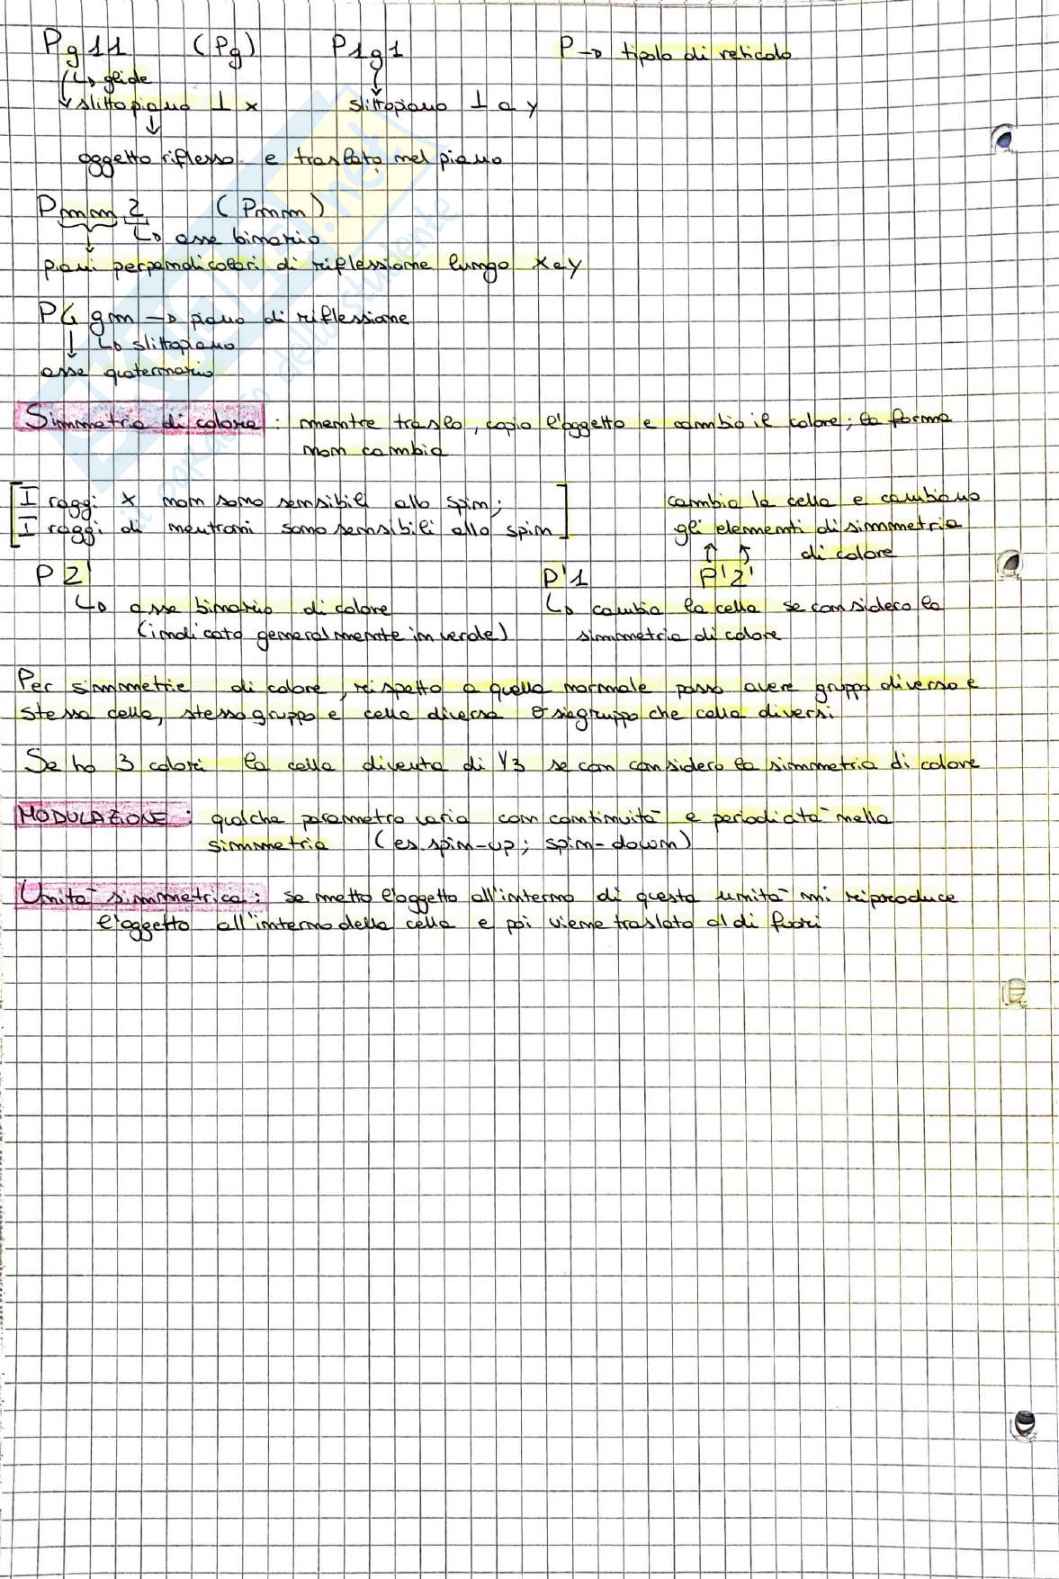 Pg11 (Pg) P1g1 P→ tipolo di reticolo
↳ glide
slittopiano ⊥ x slittopiano ⊥ a y
↓
oggetto riflesso e traslato nel piano
Pmm2 (Pmm)
↳ asse binario
piani perpendicolari di riflessione lungo x e y
P4gm → piano di riflessione
↳ slittopiano
asse quaternario
Simmetria di colore: mentre traslo, copio l'oggetto e cambio il colore; la forma
non cambia
[I raggi x non sono sensibili allo spin; cambia la cella e cambiano
I raggi di neutroni sono sensibili allo spin] gli elementi di simmetria
di colore
P2' P'1 P'2'
↳ asse binario di colore ↳ cambia la cella se considero la
(indicato generalmente in verde) simmetria di colore
Per simmetrie di colore, rispetto a quella normale posso avere gruppo diverso e
stessa cella, stesso gruppo e cella diversa o sia gruppo che cella diversi.
Se ho 3 colori la cella diventa di 1/3 se con considero la simmetria di colore
MODULAZIONE: qualche parametro varia con continuità e periodicità nella
simmetria (es. spin-up; spin-down)
Unità simmetrica: se metto l'oggetto all'interno di questa unità mi riproduce
l'oggetto all'interno della cella e poi viene traslato al di fuori